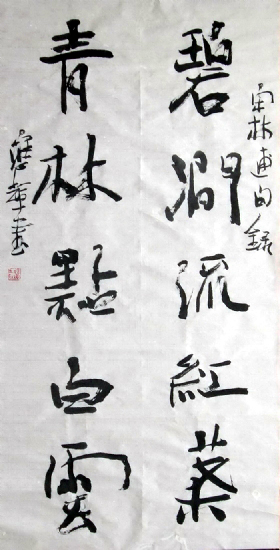 宋林逋句錄
碧澗流紅葉
青林點白雲